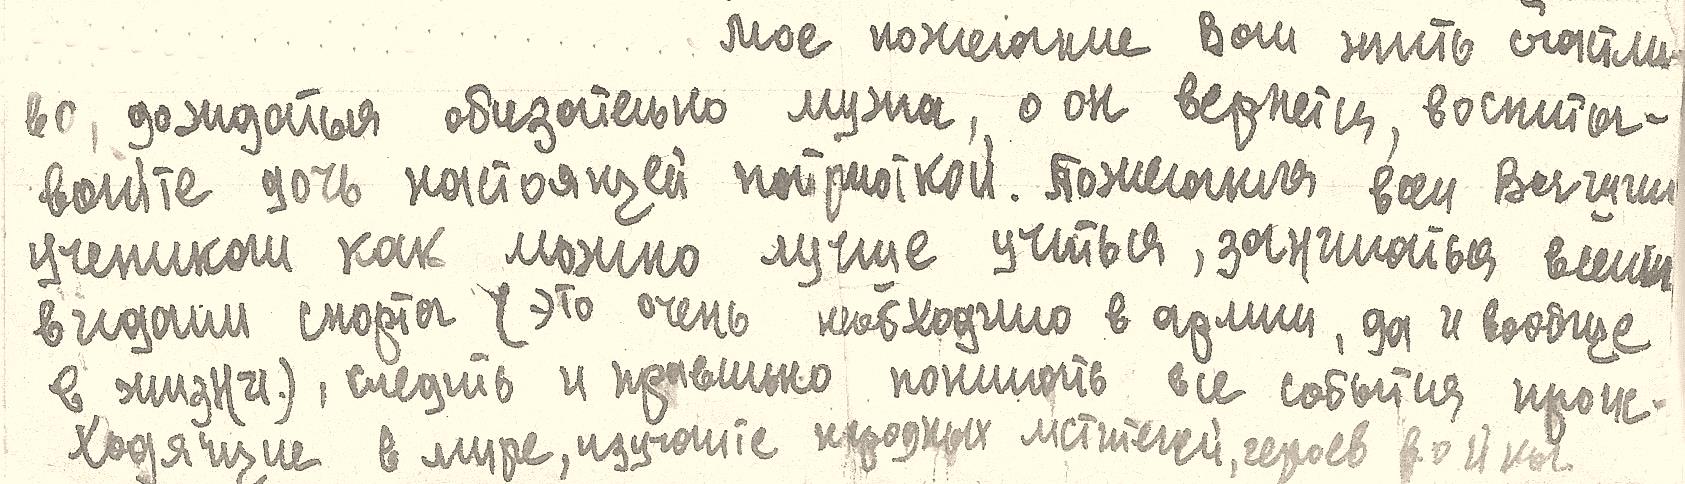 Мое пожелание Вам жить счастли-
во, дождаться обязательно мужа, а он вернется, воспиты-
вайте дочь настоящей патриоткой. Пожелания всем Вашим
ученикам как можно лучше учиться, заниматься всеми
видами спорта (это очень необходимо в армии, да и вообще
в жизни.), следить и правильно понимать все события проис-
ходящие в мире, изучайте народных мстителей, героев войны.